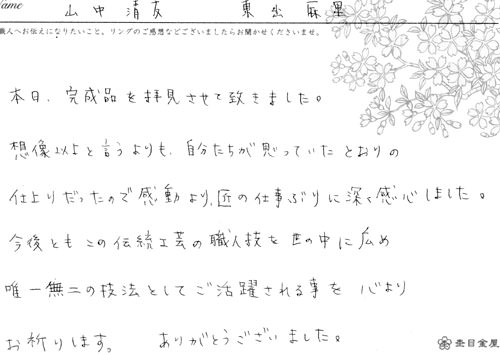 Name 山中 清友 東出 麻里
職人へお伝えになりたいこと。リングのご感想などございましたらお聞かせくださいませ。
本日、完成品を拝見させて致きました。
想像以上と言うよりも、自分たちが思っていたとおりの
仕上りだったので感動より、匠の仕事ぶりに深く感心しました。
今後ともこの伝統工芸の職人技を世の中に広め
唯一無二の技法としてご活躍される事を心より
お祈りします。 ありがとうございました。
杢目金屋